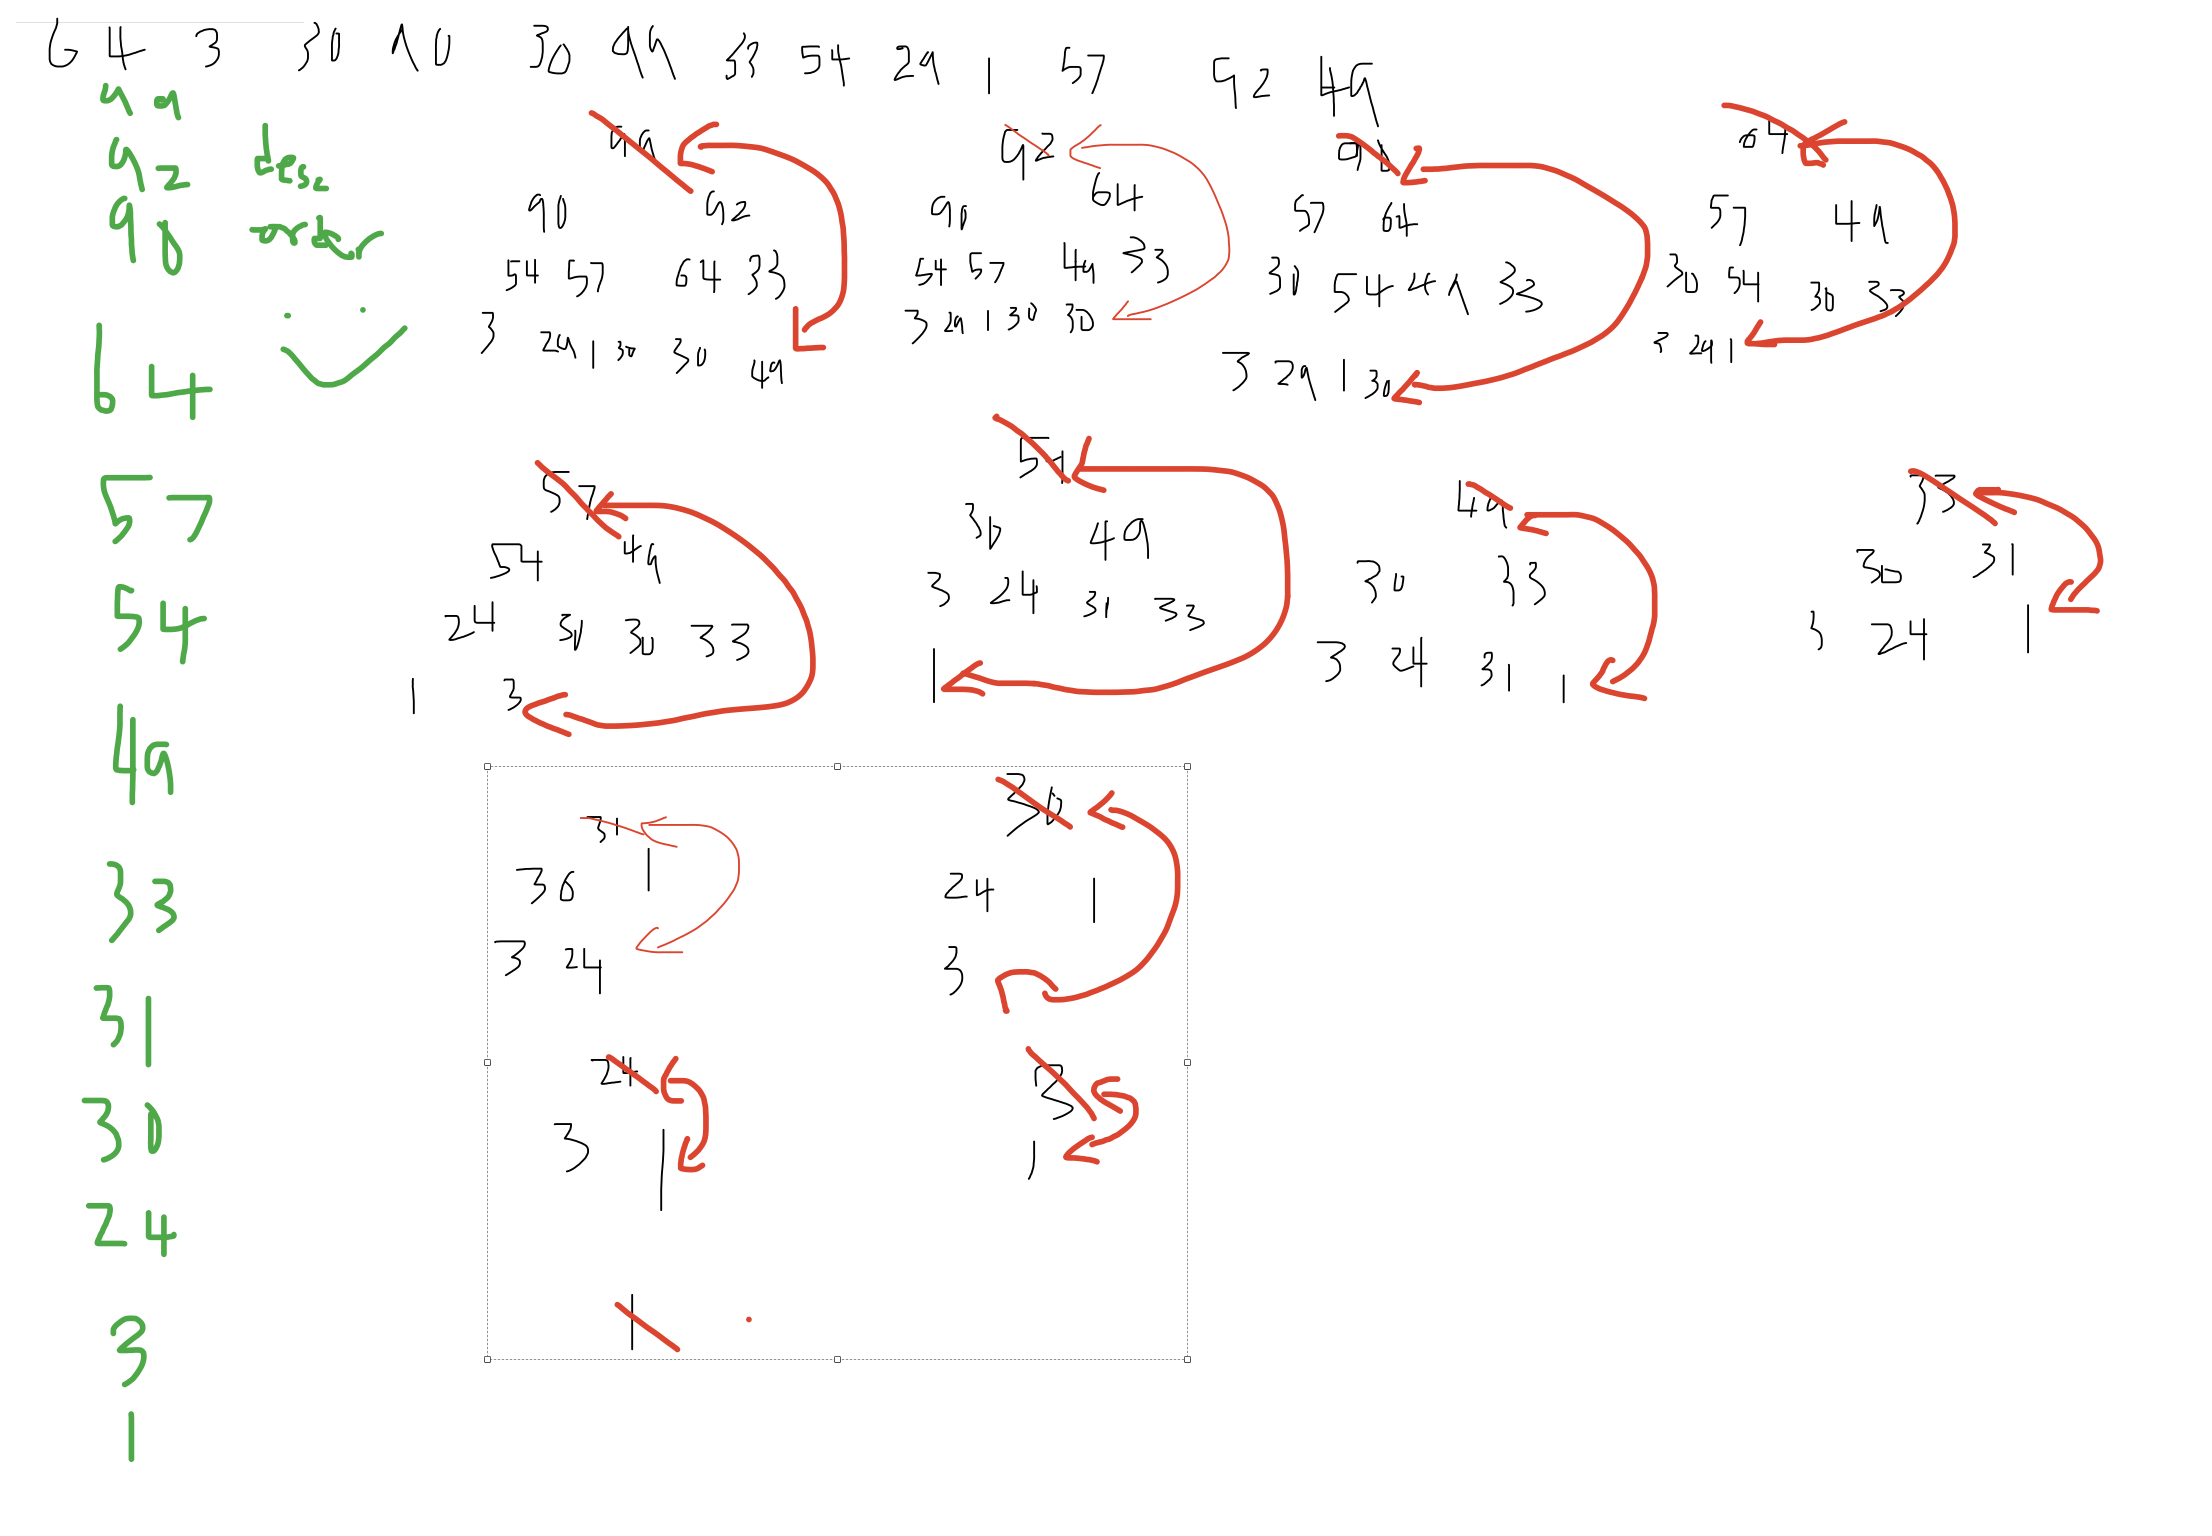 64 3 30 90 30 99 33 54 29 1 57 92 49
99
92 desc
90 order
64
57
54
49
33
31
30
24
3
1
99
90 92
54 57 64 33
3 29 1 30 30 49
92
90 64
54 57 49 33
3 29 1 30 30
90
57 64
30 54 49 33
3 29 1 30
64
57 49
30 54 30 33
3 29 1
57
54 49
24 30 30 33
1 3
54
30 49
3 24 31 33
1
49
30 33
3 24 31 1
33
30 31
3 24 1
31
30 1
3 24
30
24 1
3
24
3 1
3
1
1